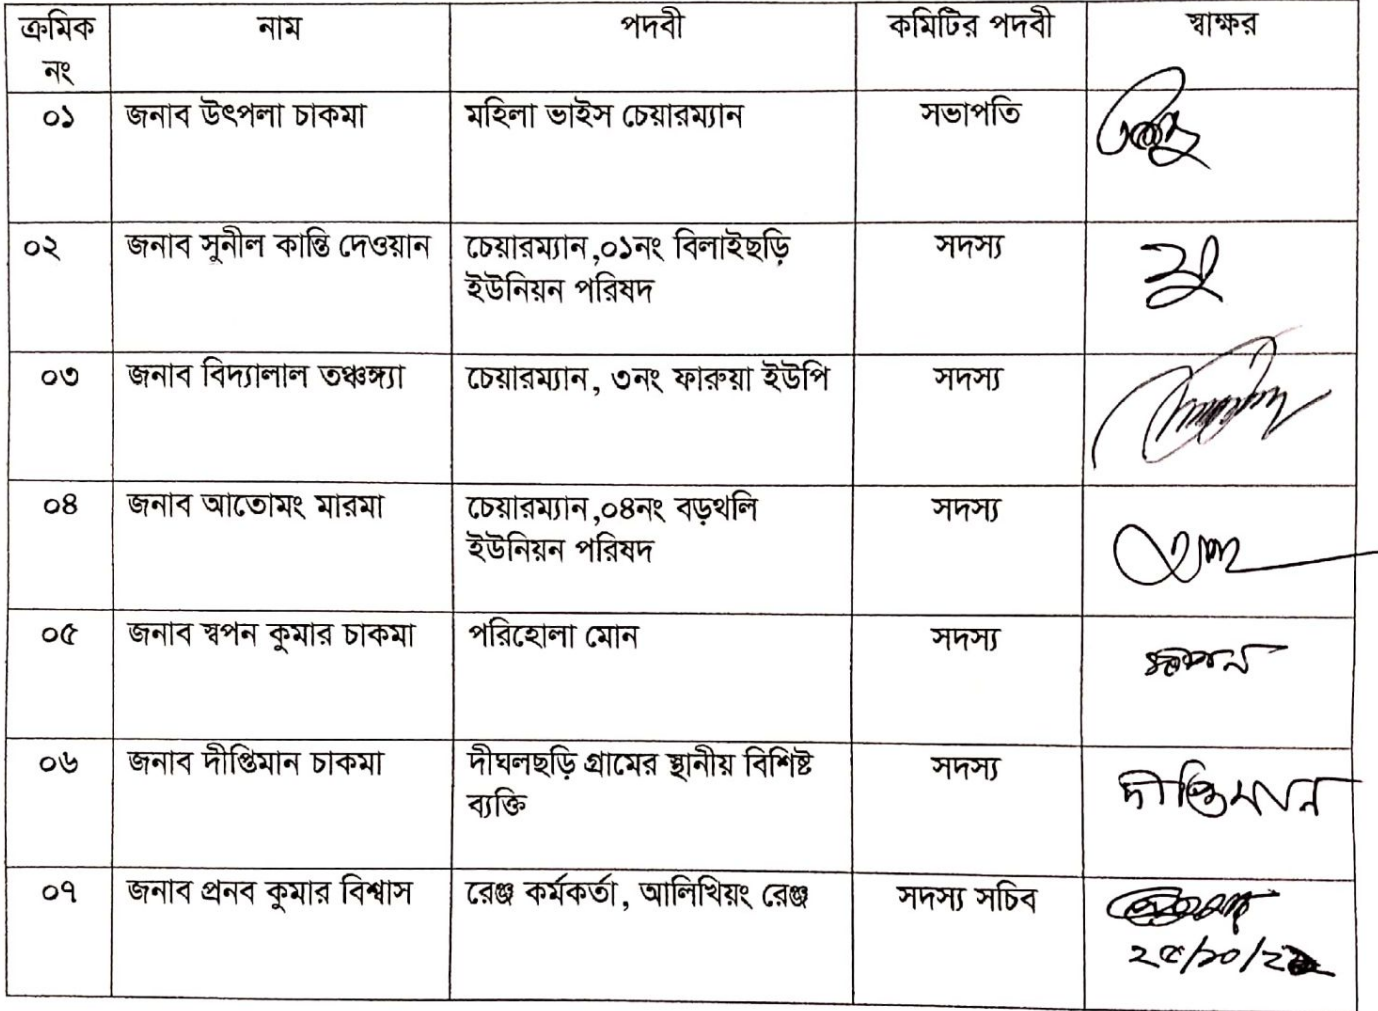 ক্রমিক নং | নাম | পদবী | কমিটির পদবী | স্বাক্ষর
০১ | জনাব উৎপলা চাকমা | মহিলা ভাইস চেয়ারম্যান | সভাপতি
০২ | জনাব সুনীল কান্তি দেওয়ান | চেয়ারম্যান ,০১নং বিলাইছড়ি
ইউনিয়ন পরিষদ | সদস্য
০৩ | জনাব বিদ্যালাল তঞ্চঙ্গ্যা | চেয়ারম্যান, ৩নং ফারুয়া ইউপি | সদস্য
০৪ | জনাব আতোমং মারমা | চেয়ারম্যান ,০৪নং বড়থলি
ইউনিয়ন পরিষদ | সদস্য
০৫ | জনাব স্বপন কুমার চাকমা | পরিহোলা মোন | সদস্য | স্বপন
০৬ | জনাব দীপ্তিমান চাকমা | দীঘলছড়ি গ্রামের স্থানীয় বিশিষ্ট
ব্যক্তি | সদস্য | দীপ্তিমান
০৭ | জনাব প্রনব কুমার বিশ্বাস | রেঞ্জ কর্মকর্তা, আলিখিয়ং রেঞ্জ | সদস্য সচিব